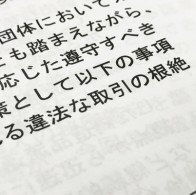 団体において
も踏まえながら、
応じた遵守すべき
策として以下の事項
る違法な取引の根絶